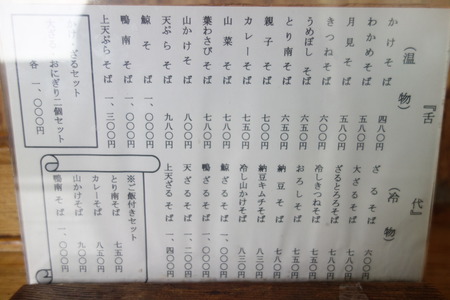 『舌代』
（温物）
かけそば 四八〇円
わかめそば 五八〇円
月見そば 五八〇円
きつねそば 六〇〇円
うめぼしそば 六五〇円
とり南そば 六五〇円
親子そば 七〇〇円
カレーそば 七五〇円
山菜そば 七八〇円
葉わさびそば 七八〇円
山かけそば 八〇〇円
天ぷらそば 九八〇円
鯨そば 一、〇〇〇円
鴨南そば 一、〇〇〇円
上天ぷらそば 一、三〇〇円
おにぎり二個セット
各 一、〇〇〇円
（冷物）
ざるそば 六〇〇円
大ざるそば 七五〇円
ざるとろろそば 七五〇円
冷しきつねそば 七五〇円
おろしそば 七五〇円
納豆そば 七八〇円
納豆キムチそば 八三〇円
冷し山かけそば 八三〇円
鯨ざるそば 一、〇〇〇円
鴨ざるそば 一、〇〇〇円
天ざるそば 一、二〇〇円
上天ざるそば 一、四〇〇円
※ご飯付きセット
とり南そば 七五〇円
カレーそば 八五〇円
山かけそば 九〇〇円
鴨南そば 一、〇〇〇円